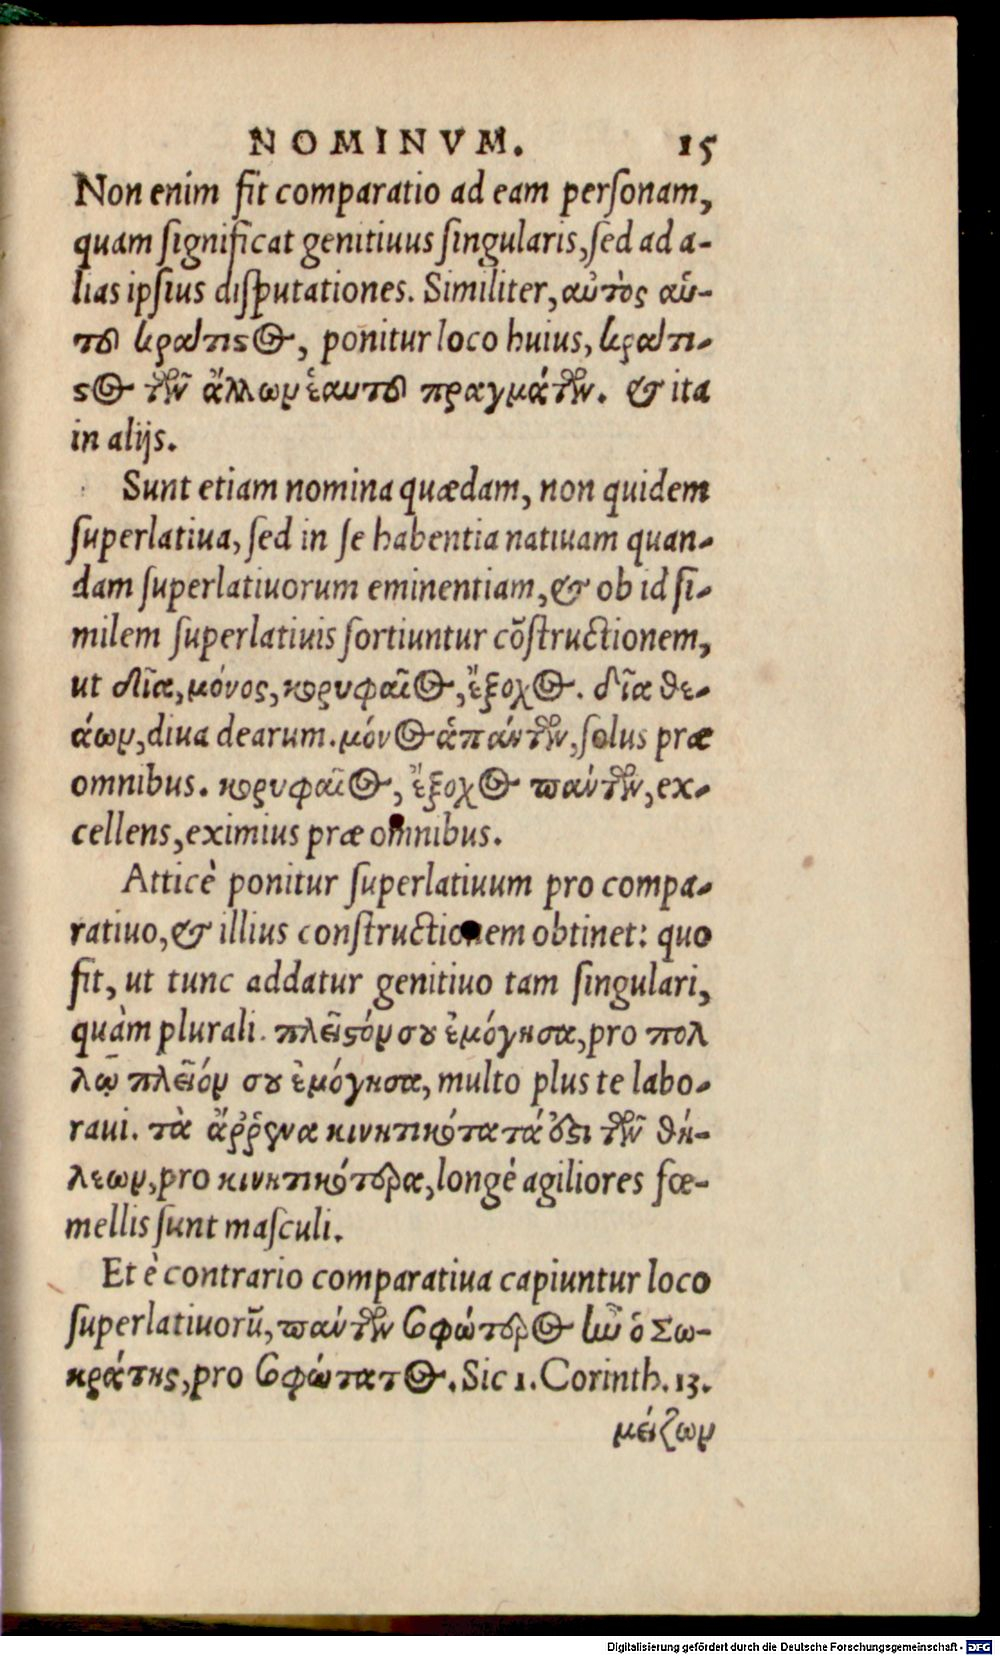 NOMINVM. 15
Non enim fit comparatio ad eam perſonam,
quam ſignificat genitiuus ſingularis, ſed ad a-
lias ipſius diſputationes. Similiter, αὐτὸς αὑ-
τοῦ κράτιστος, ponitur loco huius, κράτι-
στος τῶν ἄλλων ἑαυτοῦ πραγμάτων. & ita
in alijs.
Sunt etiam nomina quædam, non quidem
ſuperlatiua, ſed in ſe habentia natiuam quan-
dam ſuperlatiuorum eminentiam, & ob id ſi-
milem ſuperlatiuis ſortiuntur cõſtructionem,
ut δῖα, μόνος, κορυφαῖος, ἔξοχος. δῖα θε-
άων, diua dearum. μόνος ἁπάντων, ſolus præ
omnibus. κορυφαῖος, ἔξοχος πάντων, ex-
cellens, eximius præ omnibus.
Atticè ponitur ſuperlatiuum pro compa-
ratiuo, & illius conſtructionem obtinet: quo
fit, ut tunc addatur genitiuo tam ſingulari,
quàm plurali. πλεῖστόν σου ἐμόγησα, pro πολ
λῷ πλεῖόν σου ἐμόγησα, multo plus te labo-
raui. τὰ ἄῤῥενα κινητικότατά ἐστι τῶν θη-
λεων, pro κινητικότερα, longè agiliores fœ-
mellis ſunt maſculi.
Et è contrario comparatiua capiuntur loco
ſuperlatiuorũ, πάντων σοφώτερος ἦν ὁ Σω-
κράτης, pro σοφώτατος. Sic 1. Corinth. 13.
μείζων
Digitalisierung gefördert durch die Deutsche Forschungsgemeinschaft - DFG